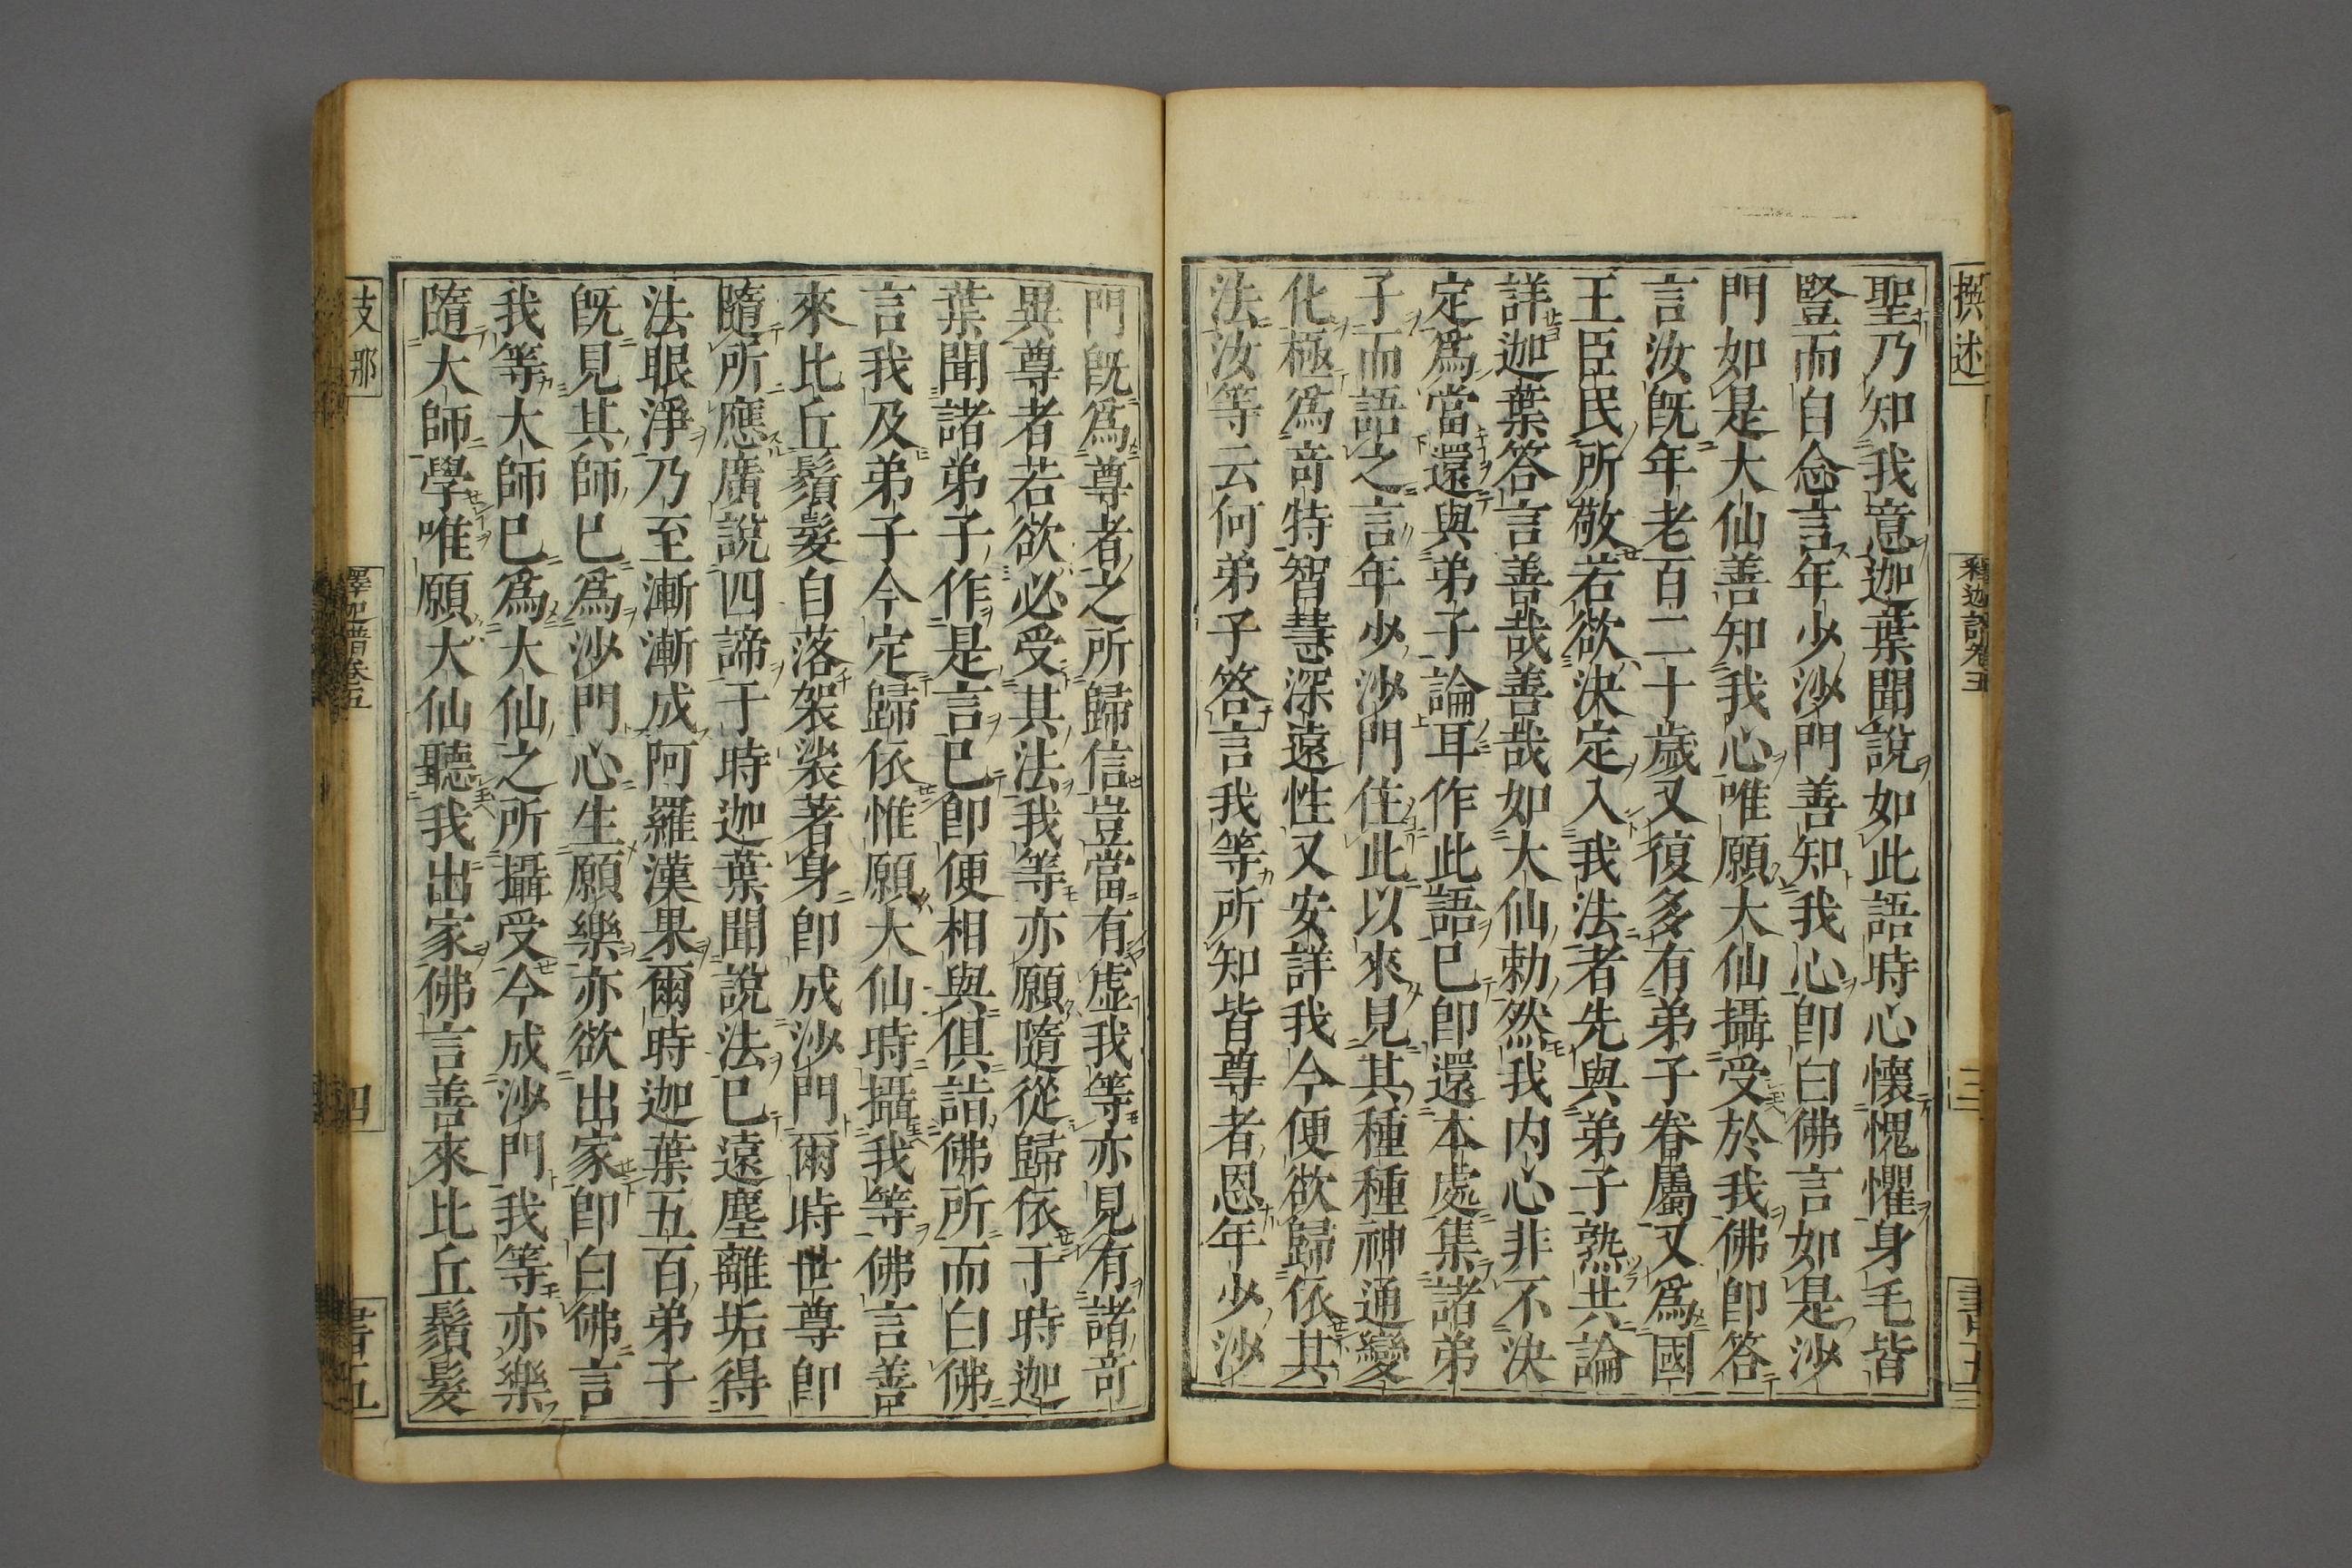 撰述
釋迦譜卷五
三
書五
聖乃知我意迦葉聞說如此語時心懷愧懼身毛皆
豎而自念言年少沙門善知我心卽白佛言如是沙
門如是大仙善知我心唯願大仙攝受於我佛卽答
言汝旣年老百二十歲又復多有弟子眷屬又爲國
王臣民所敬若欲決定入我法者先與弟子熟共論
詳迦葉答言善哉善哉如大仙勅然我內心非不決
定爲當還與弟子論耳作此語已卽還本處集諸弟
子而語之言年少沙門住此以來見其種種神通變
化極爲奇特智慧深遠性又安詳我今便欲歸依其
法汝等云何弟子答言我等所知皆尊者恩年少沙
門旣爲尊者之所歸信豈當有虛我等亦見有諸奇
異尊者若欲必受其法我等亦願隨從歸依于時迦
葉聞諸弟子作是言已卽便相與俱詣佛所而白佛
言我及弟子今定歸依惟願大仙時攝我等佛言善
來比丘鬚髮自落袈裟著身卽成沙門爾時世尊卽
隨所應廣說四諦于時迦葉聞說法已遠塵離垢得
法眼淨乃至漸漸成阿羅漢果爾時迦葉五百弟子
旣見其師已爲沙門心生願樂亦欲出家卽白佛言
我等大師已爲大仙之所攝受今成沙門我等亦樂
隨大師學唯願大仙聽我出家佛言善來比丘鬚髮
支那
釋迦譜卷五
四
書五